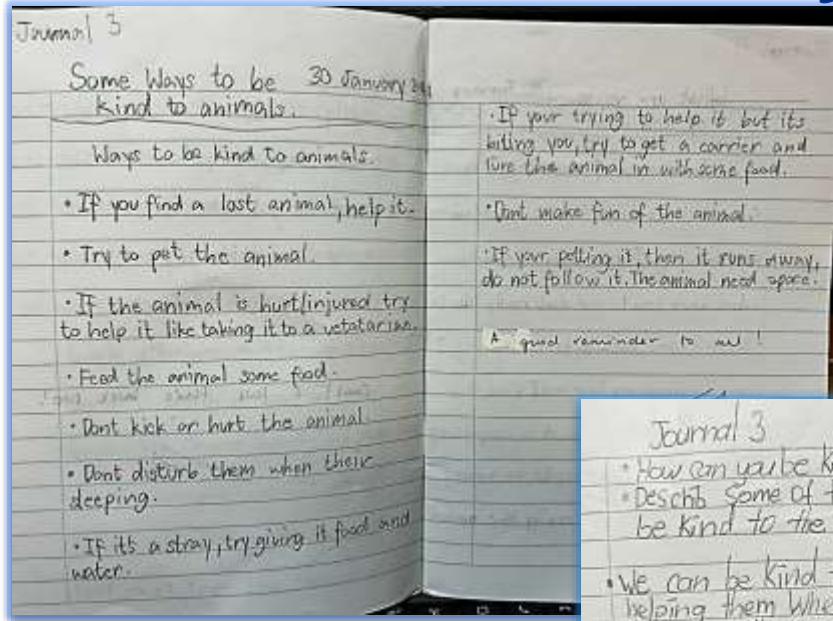 Journal 3
Some Ways to be
kind to animals.
30 January
Ways to be kind to animals.
• If you find a lost animal, help it.
• Try to pet the animal.
• If the animal is hurt/injured try
to help it like taking it to a vetatarian.
• Feed the animal some food.
• Dont kick or hurt the animal
• Dont disturb them when their
sleeping.
• If it's a stray, try giving it food and
water.
• If your trying to help it but its
biting you, try to get a carrier and
lure the animal in with some food.
• Dont make fun of the animal.
• If your petting it, then it runs away,
do not follow it. The animal need space.
A good reminder to all!
Journal 3
• How can you be
• Describ Some of
be kind to the
• We can be kind
helping them